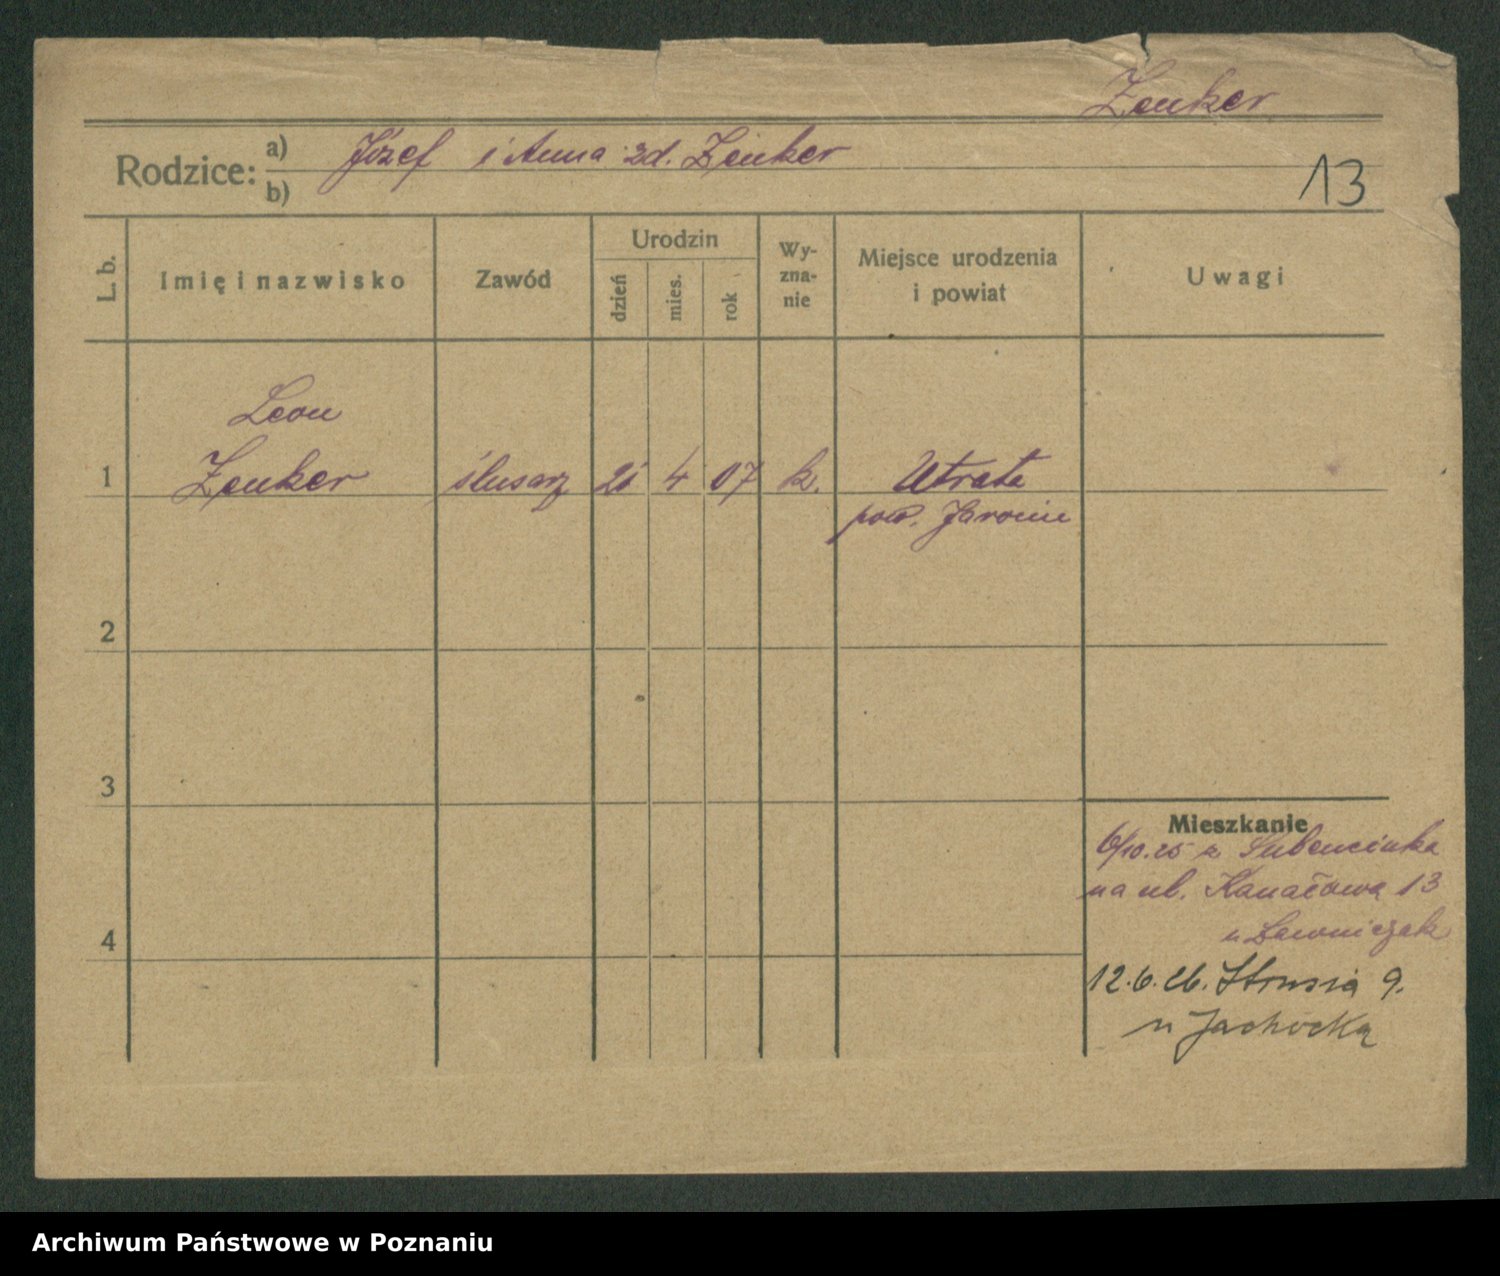 Zenker
Rodzice: a) Józef i Anna zd. Zenker
b)
13
L. b.
Imię i nazwisko
Zawód
Urodzin
dzień
mies.
rok
Wy-
zna-
nie
Miejsce urodzenia
i powiat
Uwagi
Leon
1 Zenker ślusarz 4 07 k. Utrata
pow. Jarocin
2
3
Mieszkanie
6/10.25 z
na ul. Kanałową 13
u Ławniczak
4
12.6.26. Strusia 9.
u Jachocką
Archiwum Państwowe w Poznaniu